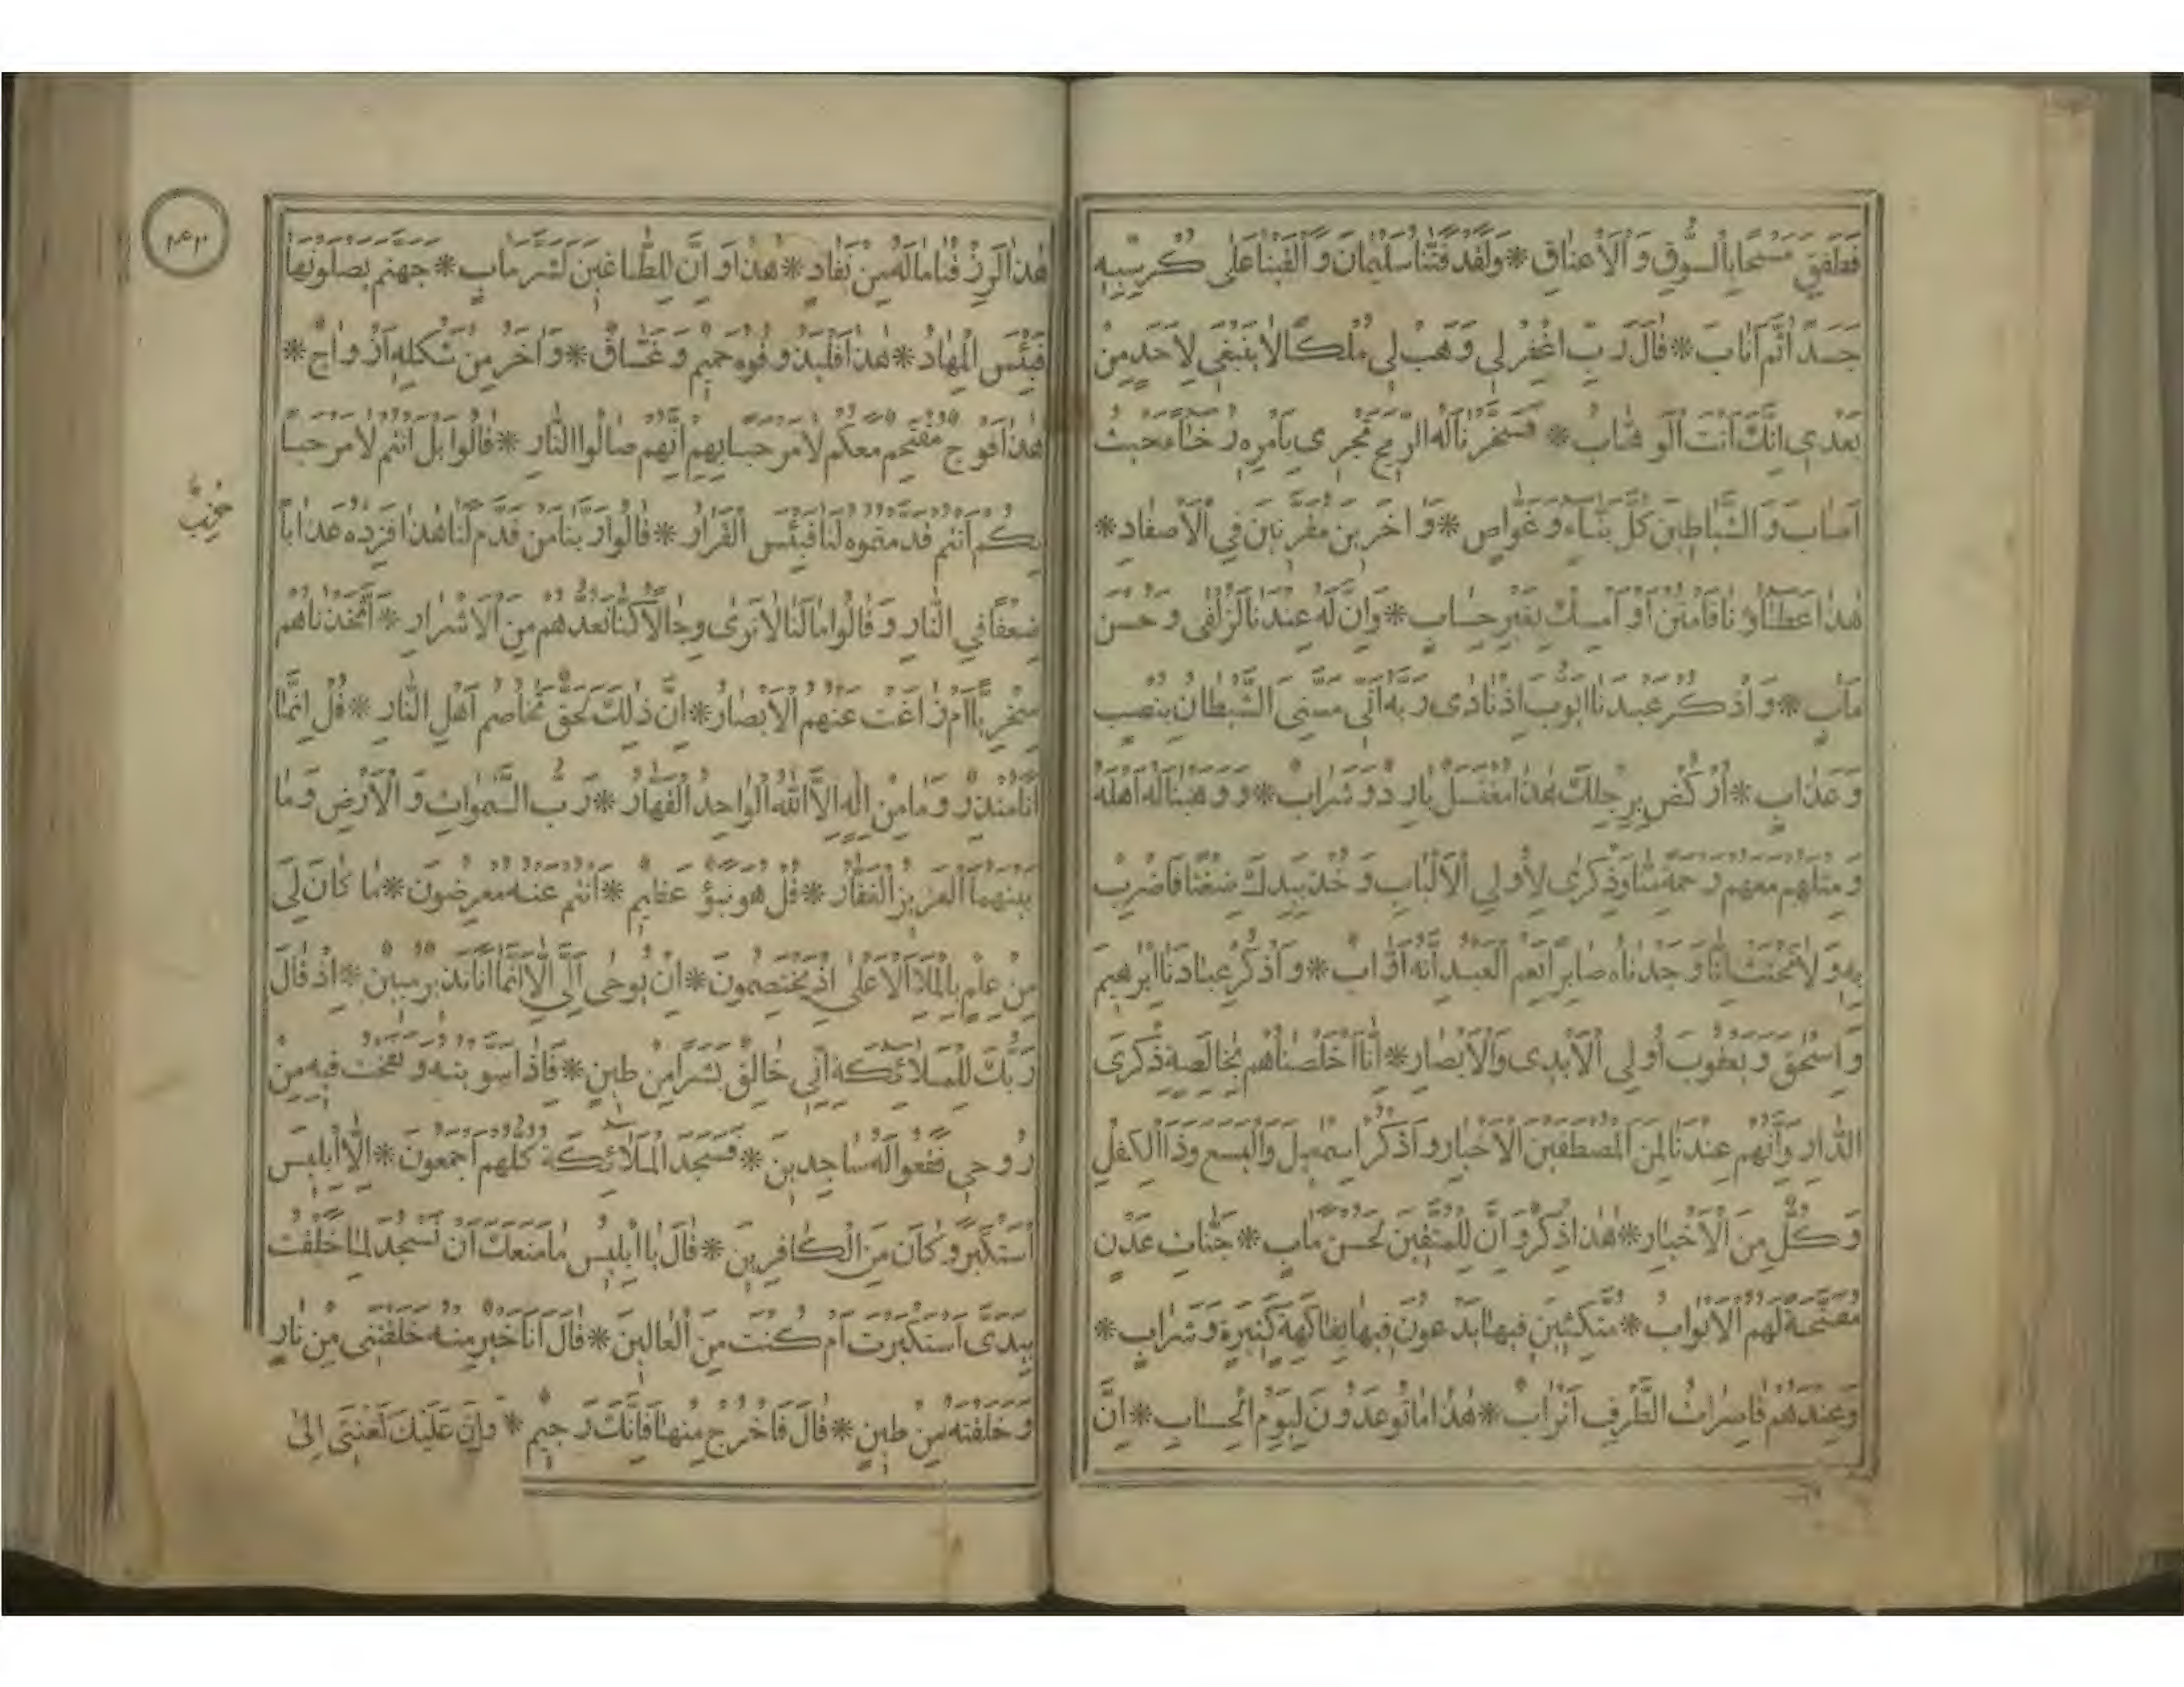 فَطَفِقَ مَسْحًا بِالسُّوقِ وَالْأَعْنَاقِ * وَلَقَدْ فَتَنَّا سُلَيْمَانَ وَأَلْقَيْنَا عَلَى كُرْسِيِّهِ
جَسَدًا ثُمَّ أَنَابَ * قَالَ رَبِّ اغْفِرْ لِي وَهَبْ لِي مُلْكًا لَا يَنْبَغِي لِأَحَدٍ مِنْ
بَعْدِي إِنَّكَ أَنْتَ الْوَهَّابُ * فَسَخَّرْنَا لَهُ الرِّيحَ تَجْرِي بِأَمْرِهِ رُخَاءً حَيْثُ
أَصَابَ وَالشَّيَاطِينَ كُلَّ بَنَّاءٍ وَغَوَّاصٍ * وَآخَرِينَ مُقَرَّنِينَ فِي الْأَصْفَادِ *
هَذَا عَطَاؤُنَا فَامْنُنْ أَوْ أَمْسِكْ بِغَيْرِ حِسَابٍ * وَإِنَّ لَهُ عِنْدَنَا لَزُلْفَى وَحُسْنَ
مَآبٍ * وَاذْكُرْ عَبْدَنَا أَيُّوبَ إِذْ نَادَى رَبَّهُ أَنِّي مَسَّنِيَ الشَّيْطَانُ بِنُصْبٍ
وَعَذَابٍ * ارْكُضْ بِرِجْلِكَ هَذَا مُغْتَسَلٌ بَارِدٌ وَشَرَابٌ * وَوَهَبْنَا لَهُ أَهْلَهُ
وَمِثْلَهُمْ مَعَهُمْ رَحْمَةً مِنَّا وَذِكْرَى لِأُولِي الْأَلْبَابِ وَخُذْ بِيَدِكَ ضِغْثًا فَاضْرِبْ
بِهِ وَلَا تَحْنَثْ إِنَّا وَجَدْنَاهُ صَابِرًا نِعْمَ الْعَبْدُ إِنَّهُ أَوَّابٌ * وَاذْكُرْ عِبَادَنَا إِبْرَاهِيمَ
وَإِسْحَقَ وَيَعْقُوبَ أُولِي الْأَيْدِي وَالْأَبْصَارِ * إِنَّا أَخْلَصْنَاهُمْ بِخَالِصَةٍ ذِكْرَى
الدَّارِ وَإِنَّهُمْ عِنْدَنَا لَمِنَ الْمُصْطَفَيْنَ الْأَخْيَارِ وَاذْكُرْ إِسْمَعِيلَ وَالْيَسَعَ وَذَا الْكِفْلِ
وَكُلٌّ مِنَ الْأَخْيَارِ * هَذَا ذِكْرٌ وَإِنَّ لِلْمُتَّقِينَ لَحُسْنَ مَآبٍ * جَنَّاتِ عَدْنٍ
مُفَتَّحَةً لَهُمُ الْأَبْوَابُ * مُتَّكِئِينَ فِيهَا يَدْعُونَ فِيهَا بِفَاكِهَةٍ كَثِيرَةٍ وَشَرَابٍ *
وَعِنْدَهُمْ قَاصِرَاتُ الطَّرْفِ أَتْرَابٌ * هَذَا مَا تُوعَدُونَ لِيَوْمِ الْحِسَابِ * إِنَّ
هَذَا لَرِزْقُنَا مَا لَهُ مِنْ نَفَادٍ * هَذَا وَإِنَّ لِلطَّاغِينَ لَشَرَّ مَآبٍ * جَهَنَّمَ يَصْلَوْنَهَا
فَبِئْسَ الْمِهَادُ * هَذَا فَلْيَذُوقُوهُ حَمِيمٌ وَغَسَّاقٌ * وَآخَرُ مِنْ شَكْلِهِ أَزْوَاجٌ *
هَذَا فَوْجٌ مُقْتَحِمٌ مَعَكُمْ لَا مَرْحَبًا بِهِمْ إِنَّهُمْ صَالُوا النَّارِ * قَالُوا بَلْ أَنْتُمْ لَا مَرْحَبًا
بِكُمْ أَنْتُمْ قَدَّمْتُمُوهُ لَنَا فَبِئْسَ الْقَرَارُ * قَالُوا رَبَّنَا مَنْ قَدَّمَ لَنَا هَذَا فَزِدْهُ عَذَابًا
حِزْبٌ
ضِعْفًا فِي النَّارِ وَقَالُوا مَا لَنَا لَا نَرَى رِجَالًا كُنَّا نَعُدُّهُمْ مِنَ الْأَشْرَارِ * أَتَّخَذْنَاهُمْ
سِخْرِيًّا أَمْ زَاغَتْ عَنْهُمُ الْأَبْصَارُ * إِنَّ ذَلِكَ لَحَقٌّ تَخَاصُمُ أَهْلِ النَّارِ * قُلْ إِنَّمَا
أَنَا مُنْذِرٌ وَمَا مِنْ إِلَهٍ إِلَّا اللَّهُ الْوَاحِدُ الْقَهَّارُ * رَبُّ السَّمَوَاتِ وَالْأَرْضِ وَمَا
بَيْنَهُمَا الْعَزِيزُ الْغَفَّارُ * قُلْ هُوَ نَبَؤٌ عَظِيمٌ * أَنْتُمْ عَنْهُ مُعْرِضُونَ * مَا كَانَ لِيَ
مِنْ عِلْمٍ بِالْمَلَإِ الْأَعْلَى إِذْ يَخْتَصِمُونَ * إِنْ يُوحَى إِلَيَّ إِلَّا أَنَّمَا أَنَا نَذِيرٌ مُبِينٌ * إِذْ قَالَ
رَبُّكَ لِلْمَلَائِكَةِ إِنِّي خَالِقٌ بَشَرًا مِنْ طِينٍ * فَإِذَا سَوَّيْتُهُ وَنَفَخْتُ فِيهِ مِنْ
رُوحِي فَقَعُوا لَهُ سَاجِدِينَ * فَسَجَدَ الْمَلَائِكَةُ كُلُّهُمْ أَجْمَعُونَ * إِلَّا إِبْلِيسَ
اسْتَكْبَرَ وَكَانَ مِنَ الْكَافِرِينَ * قَالَ يَا إِبْلِيسُ مَا مَنَعَكَ أَنْ تَسْجُدَ لِمَا خَلَقْتُ
بِيَدَيَّ أَسْتَكْبَرْتَ أَمْ كُنْتَ مِنَ الْعَالِينَ * قَالَ أَنَا خَيْرٌ مِنْهُ خَلَقْتَنِي مِنْ نَارٍ
وَخَلَقْتَهُ مِنْ طِينٍ * قَالَ فَاخْرُجْ مِنْهَا فَإِنَّكَ رَجِيمٌ * وَإِنَّ عَلَيْكَ لَعْنَتِي إِلَى